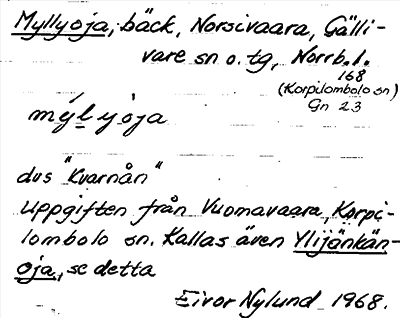 Myllyoja, bäck, Norsivaara, Gälli-
vare sn o. tg, Norrb. l.
168
(Korpilombolo sn)
Gn 23
mýlyòja
dvs "Kvarnån"
Uppgiften från Vuomavaara, Korpi-
lombolo sn. Kallas även Ylijänkän-
oja, se detta
Eivor Nylund 1968.